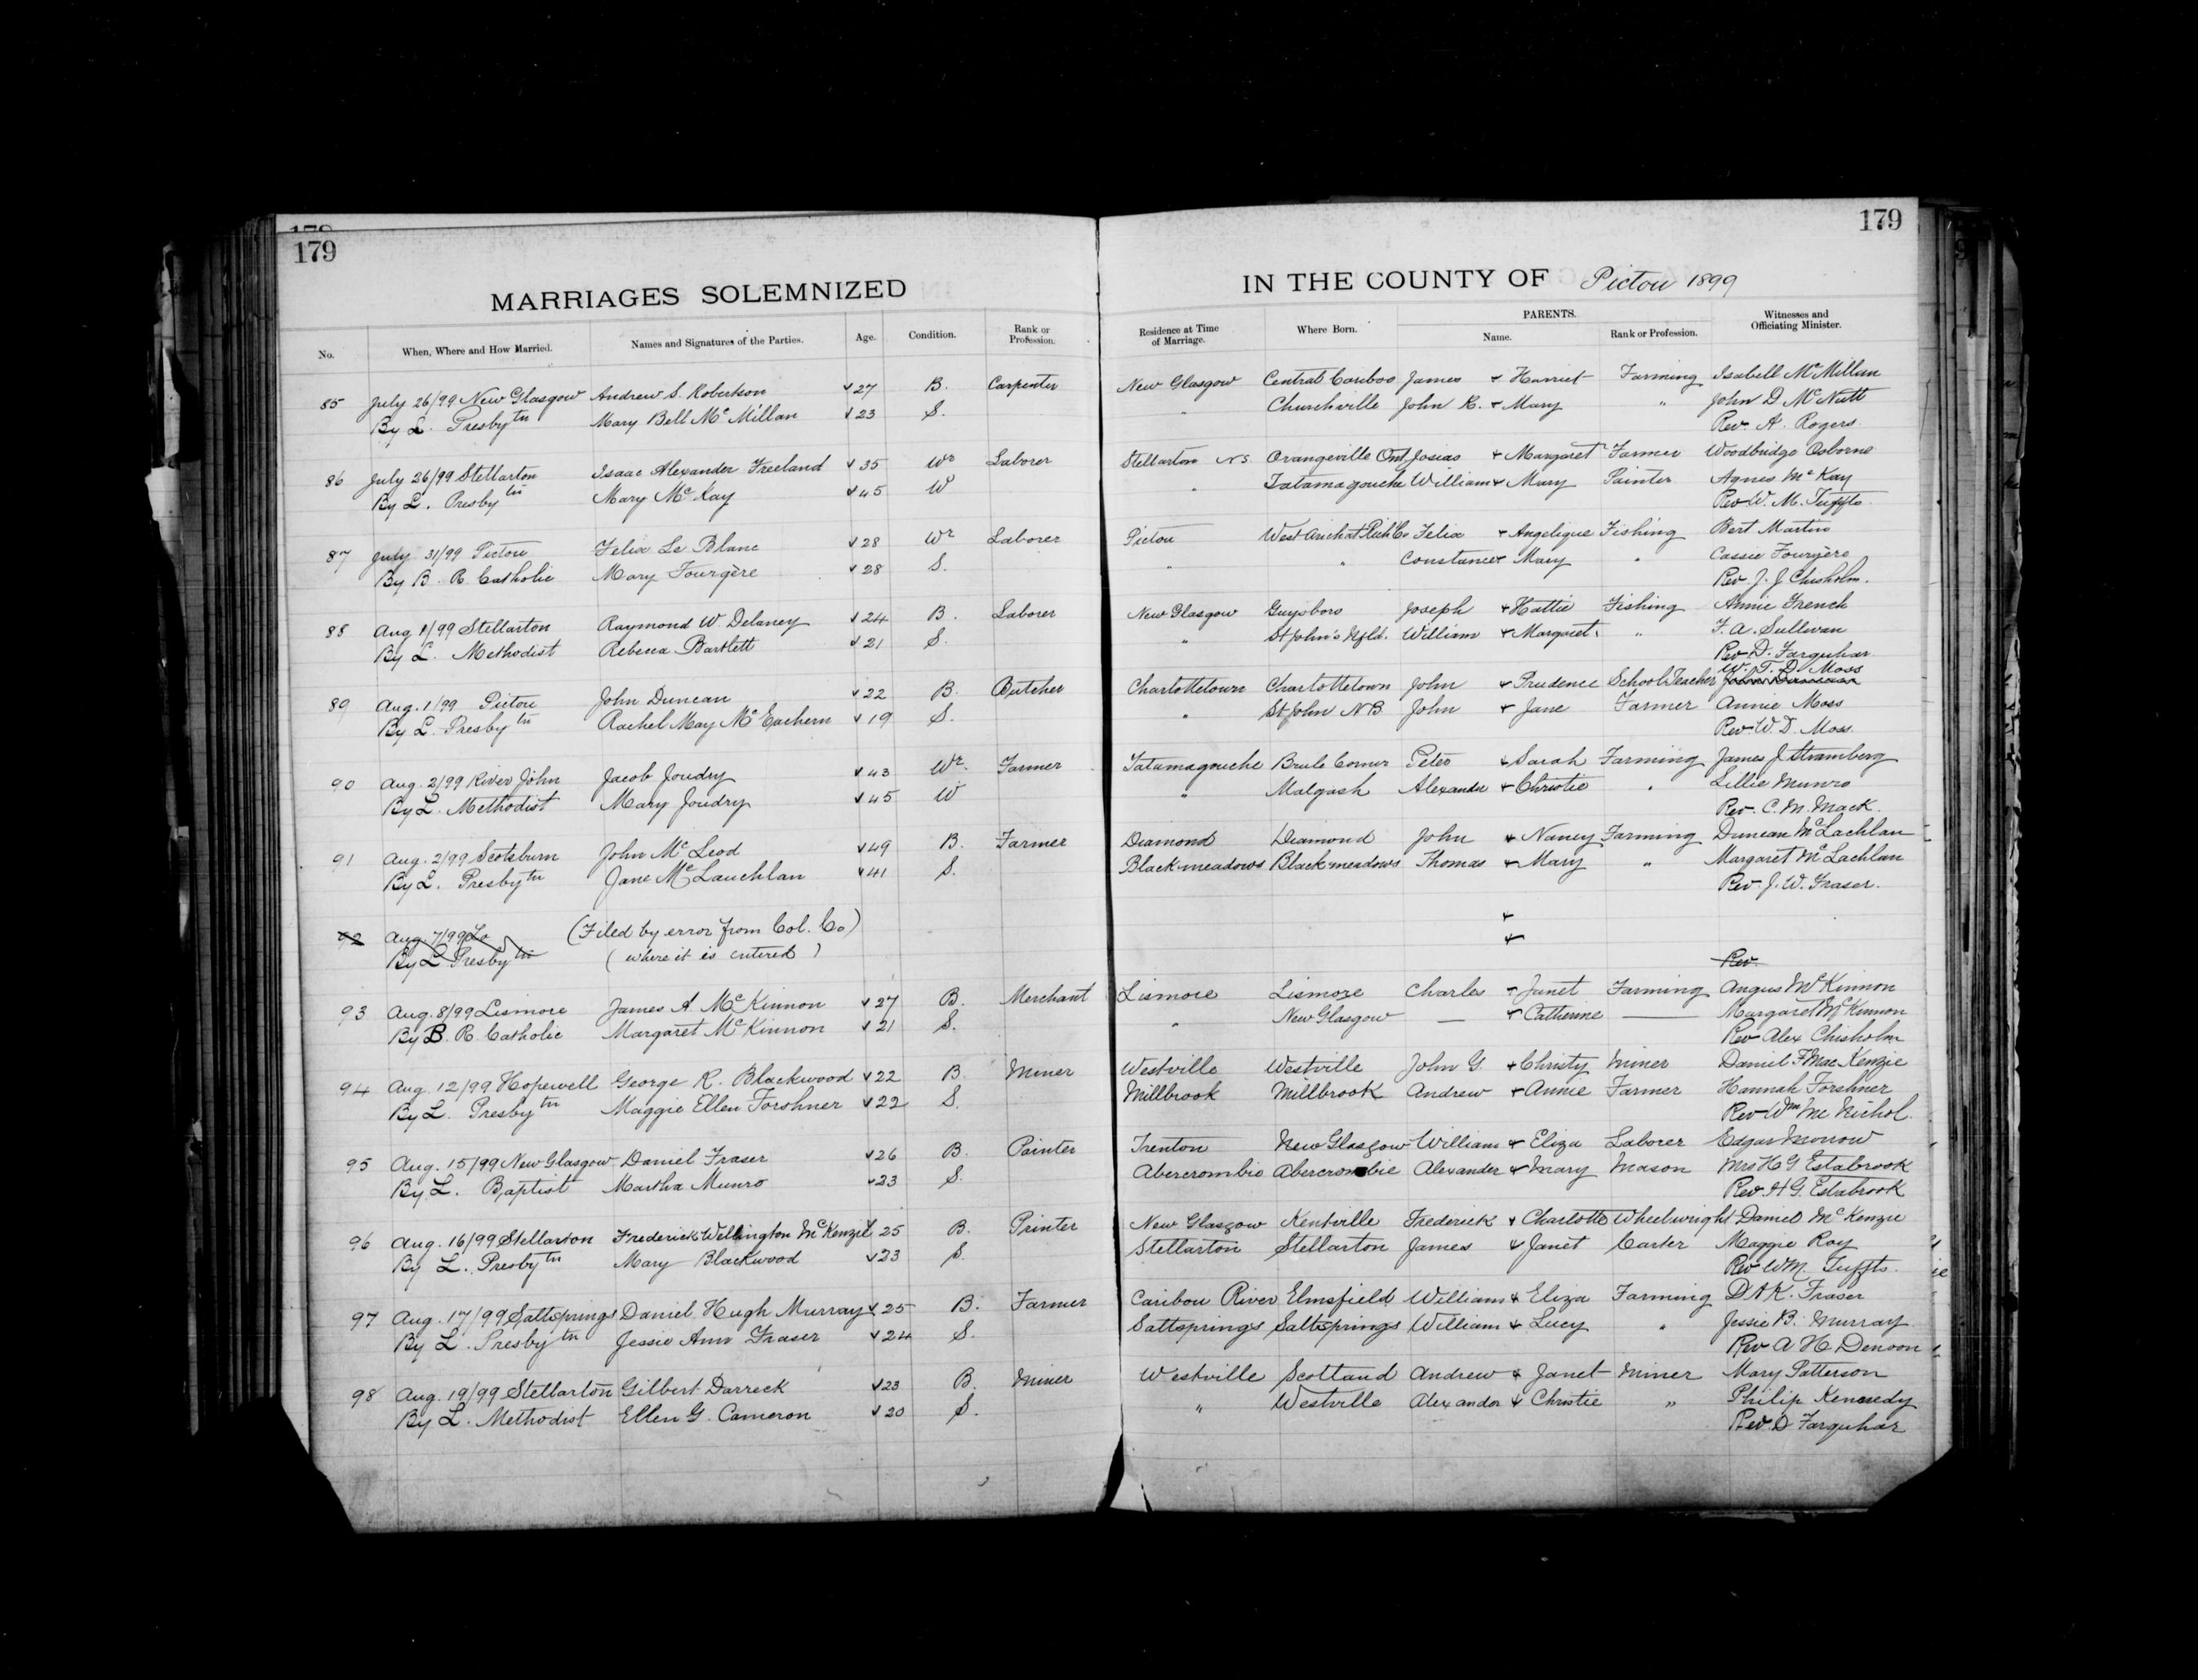 179
179
MARRIAGES SOLEMNIZED IN THE COUNTY OF Pictou 1899
No. When, Where and How Married. Names and Signatures of the Parties. Age. Condition. Rank or Profession. Residence at Time of Marriage. Where Born. PARENTS. Name. Rank or Profession. Witnesses and Officiating Minister.
85 July 26/99 New Glasgow Andrew S. Robertson 27 B. Carpenter New Glasgow Central Cariboo James & Harriet Farming Isabell McMillan
By L. Presbytn Mary Bell McMillan 23 S. " Churchville John R. & Mary " John D McNutt
Rev. A. Rogers.
86 July 26/99 Stellarton Isaac Alexander Freeland 35 Wr Laborer Stellarton N.S. Orangeville Ont Josias & Margaret Farmer Woodbridge Osborne
By L. Presbytn Mary McKay 45 W " Tatamagouche William & Mary Painter Agnes McKay
Rev W. M. Tuffts
87 July 31/99 Pictou Felix Le Blanc 28 Wr Laborer Pictou West Arichat Rich Co Felix & Angelique Fishing Bert Martin
By B. R. Catholic Mary Fourgère 28 S. " " Constance & Mary " Cassie Fourgère
Rev. J. J Chisholm.
88 Aug 1/99 Stellarton Raymond W. Delaney 24 B. Laborer New Glasgow Guysboro Joseph & Hattie Fishing Annie French
By L. Methodist Rebecca Bartlett 21 S. " St John's Nfld. William & Margaret " F. A. Sullivan
Rev D. Farquhar
W. T. D. Moss
89 Aug. 1/99 Pictou John Duncan 22 B. Butcher Charlottetown Charlottetown John & Prudence School Teacher John Duncan
By L. Presbytn Rachel May McEachern 19 S. " St John N B. John & Jane Farmer Annie Moss
Rev W. D. Moss.
90 Aug. 2/99 River John Jacob Joudry 43 Wr. Farmer Tatamagouche Brule Corner Peter & Sarah Farming James J Stramberg
By L. Methodist Mary Joudry 45 W " Malagash Alexander & Christie " Lillie Munro
Rev. C. M. Mack.
91 Aug. 2/99 Scotsburn John McLeod 49 B. Farmer Diamond Diamond John & Nancy Farming Duncan McLachlan
By L. Presbytn Jane McLauchlan 41 S. Black meadows Black meadows Thomas & Mary " Margaret McLachlan
Rev. J. W. Fraser.
92 Aug. 7/99 Lo (Filed by error from Col. Co) &
By L Presbytn (where it is entered) &
Rev.
93 Aug. 8/99 Lismore James A McKinnon 27 B. Merchant Lismore Lismore Charles & Janet Farming Angus McKinnon
By B. R. Catholic Margaret McKinnon 21 S. " New Glasgow — & Catherine — Margaret McKinnon
Rev Alex Chisholm
94 Aug. 12/99 Hopewell George R. Blackwood 22 B. Miner Westville Westville John G. & Christy Miner Daniel F MacKenzie
By L. Presbytn Maggie Ellen Forshner 22 S. Millbrook Millbrook Andrew & Annie Farmer Hannah Forshner
Rev Wm McNichol.
95 Aug. 15/99 New Glasgow Daniel Fraser 26 B. Painter Trenton New Glasgow William & Eliza Laborer Edgar Morrow
By L. Baptist Martha Munro 23 S. Abercrombie Abercrombie Alexander & Mary Mason Mrs H G Estabrook
Rev. H G. Estabrook
96 Aug. 16/99 Stellarton Frederick Wellington McKenzie 25 B. Printer New Glasgow Kentville Frederick & Charlotte Wheelwright Daniel McKenzie
By L. Presbytn Mary Blackwood 23 S. Stellarton Stellarton James & Janet Carter Maggie Roy
Rev W M. Tuffts.
97 Aug. 17/99 Saltsprings Daniel Hugh Murray 25 B. Farmer Caribou River Elmsfield William & Eliza Farming D A K. Fraser
By L. Presbytn Jessie Ann Fraser 24 S. Saltsprings Saltsprings William & Lucy " Jessie B. Murray
Rev A H. Denoon
98 Aug. 19/99 Stellarton Gilbert Darreck 23 B. Miner Westville Scotland Andrew & Janet Miner Mary Patterson
By L. Methodist Ellen G. Cameron 20 S. " Westville Alexander & Christie " Philip Kennedy
Rev. D Farquhar